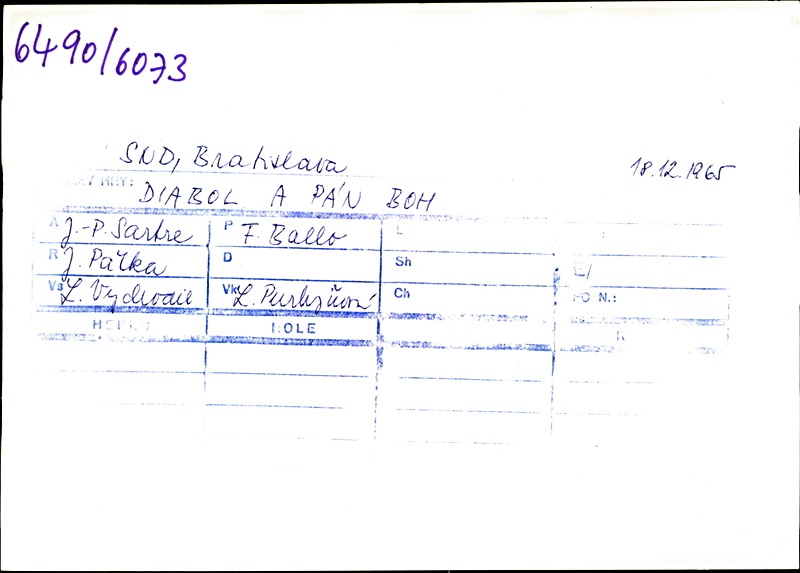 6490/6073
SND, Bratislava 18.12.1965
HRY: DIABOL A PÁN BOH
A J.-P. Sartre P F. Ballo L
R J. Paška D Sh
Vs L. Vychodil Vk L. Purkyňová Ch
ROLE